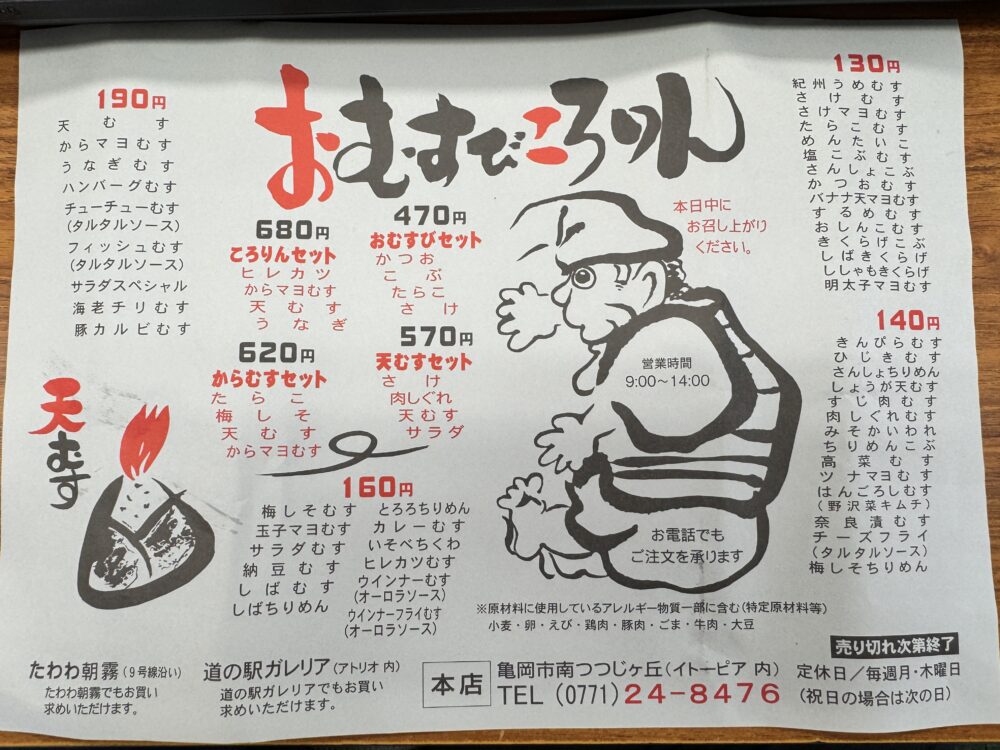 おむすびころりん
190円
天むす
からマヨむす
うなぎむす
ハンバーグむす
チューチューむす
(タルタルソース)
フィッシュむす
(タルタルソース)
サラダスペシャル
海老チリむす
豚カルビむす
680円
ころりんセット
ヒレカツ
からマヨむす
天むす
うなぎ
470円
おむすびセット
かつお
こぶ
たらこ
さけ
620円
からむすセット
たらこ
梅しそ
天むす
からマヨむす
570円
天むすセット
さけ
肉しぐれ
天むす
サラダ
160円
梅しそむす
玉子マヨむす
サラダむす
納豆むす
しばむす
しばちりめん
とろろちりめん
カレーむす
いそべちくわ
ヒレカツむす
ウインナーむす
(オーロラソース)
ウインナーフライむす
(オーロラソース)
天むす
本日中に
お召し上がり
ください。
営業時間
9:00〜14:00
お電話でも
ご注文を承ります
130円
紀州うめむす
さけむす
さけマヨむす
たらこむす
めんたいこ
塩こぶむす
さんしょこぶ
かつおむす
バナナ天マヨむす
するめむす
おしんこむす
きくらげこぶ
しばきくらげ
ししゃもきくらげ
明太子マヨむす
140円
きんぴらむす
ひじきむす
さんしょちりめん
しょうが天むす
すじ肉むす
肉しぐれむす
みそかいわれ
ちりめんこぶ
高菜むす
ツナマヨむす
はんごろしむす
(野沢菜キムチ)
奈良漬むす
チーズフライ
(タルタルソース)
梅しそちりめん
※原材料に使用しているアレルギー物質一部に含む(特定原材料等)
小麦・卵・えび・鶏肉・豚肉・ごま・牛肉・大豆
売り切れ次第終了
たわわ朝霧(9号線沿い)
たわわ朝霧でもお買い
求めいただけます。
道の駅ガレリア(アトリオ内)
道の駅ガレリアでもお買い
求めいただけます。
本店
亀岡市南つつじヶ丘(イトーピア内)
TEL(0771)24-8476
定休日/毎週月・木曜日
(祝日の場合は次の日)